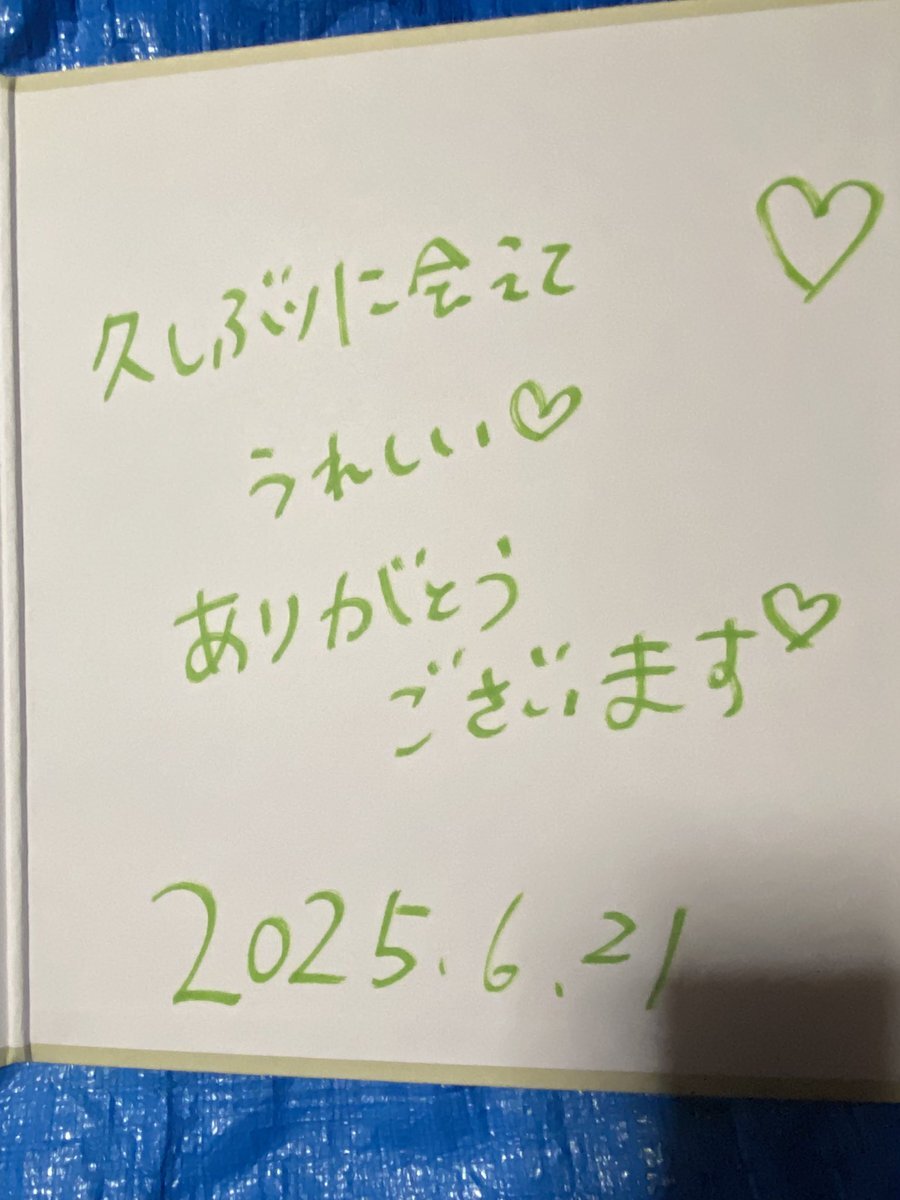 久しぶりに会えて
うれしい♡
ありがとう
ございます♡
2025.6.21